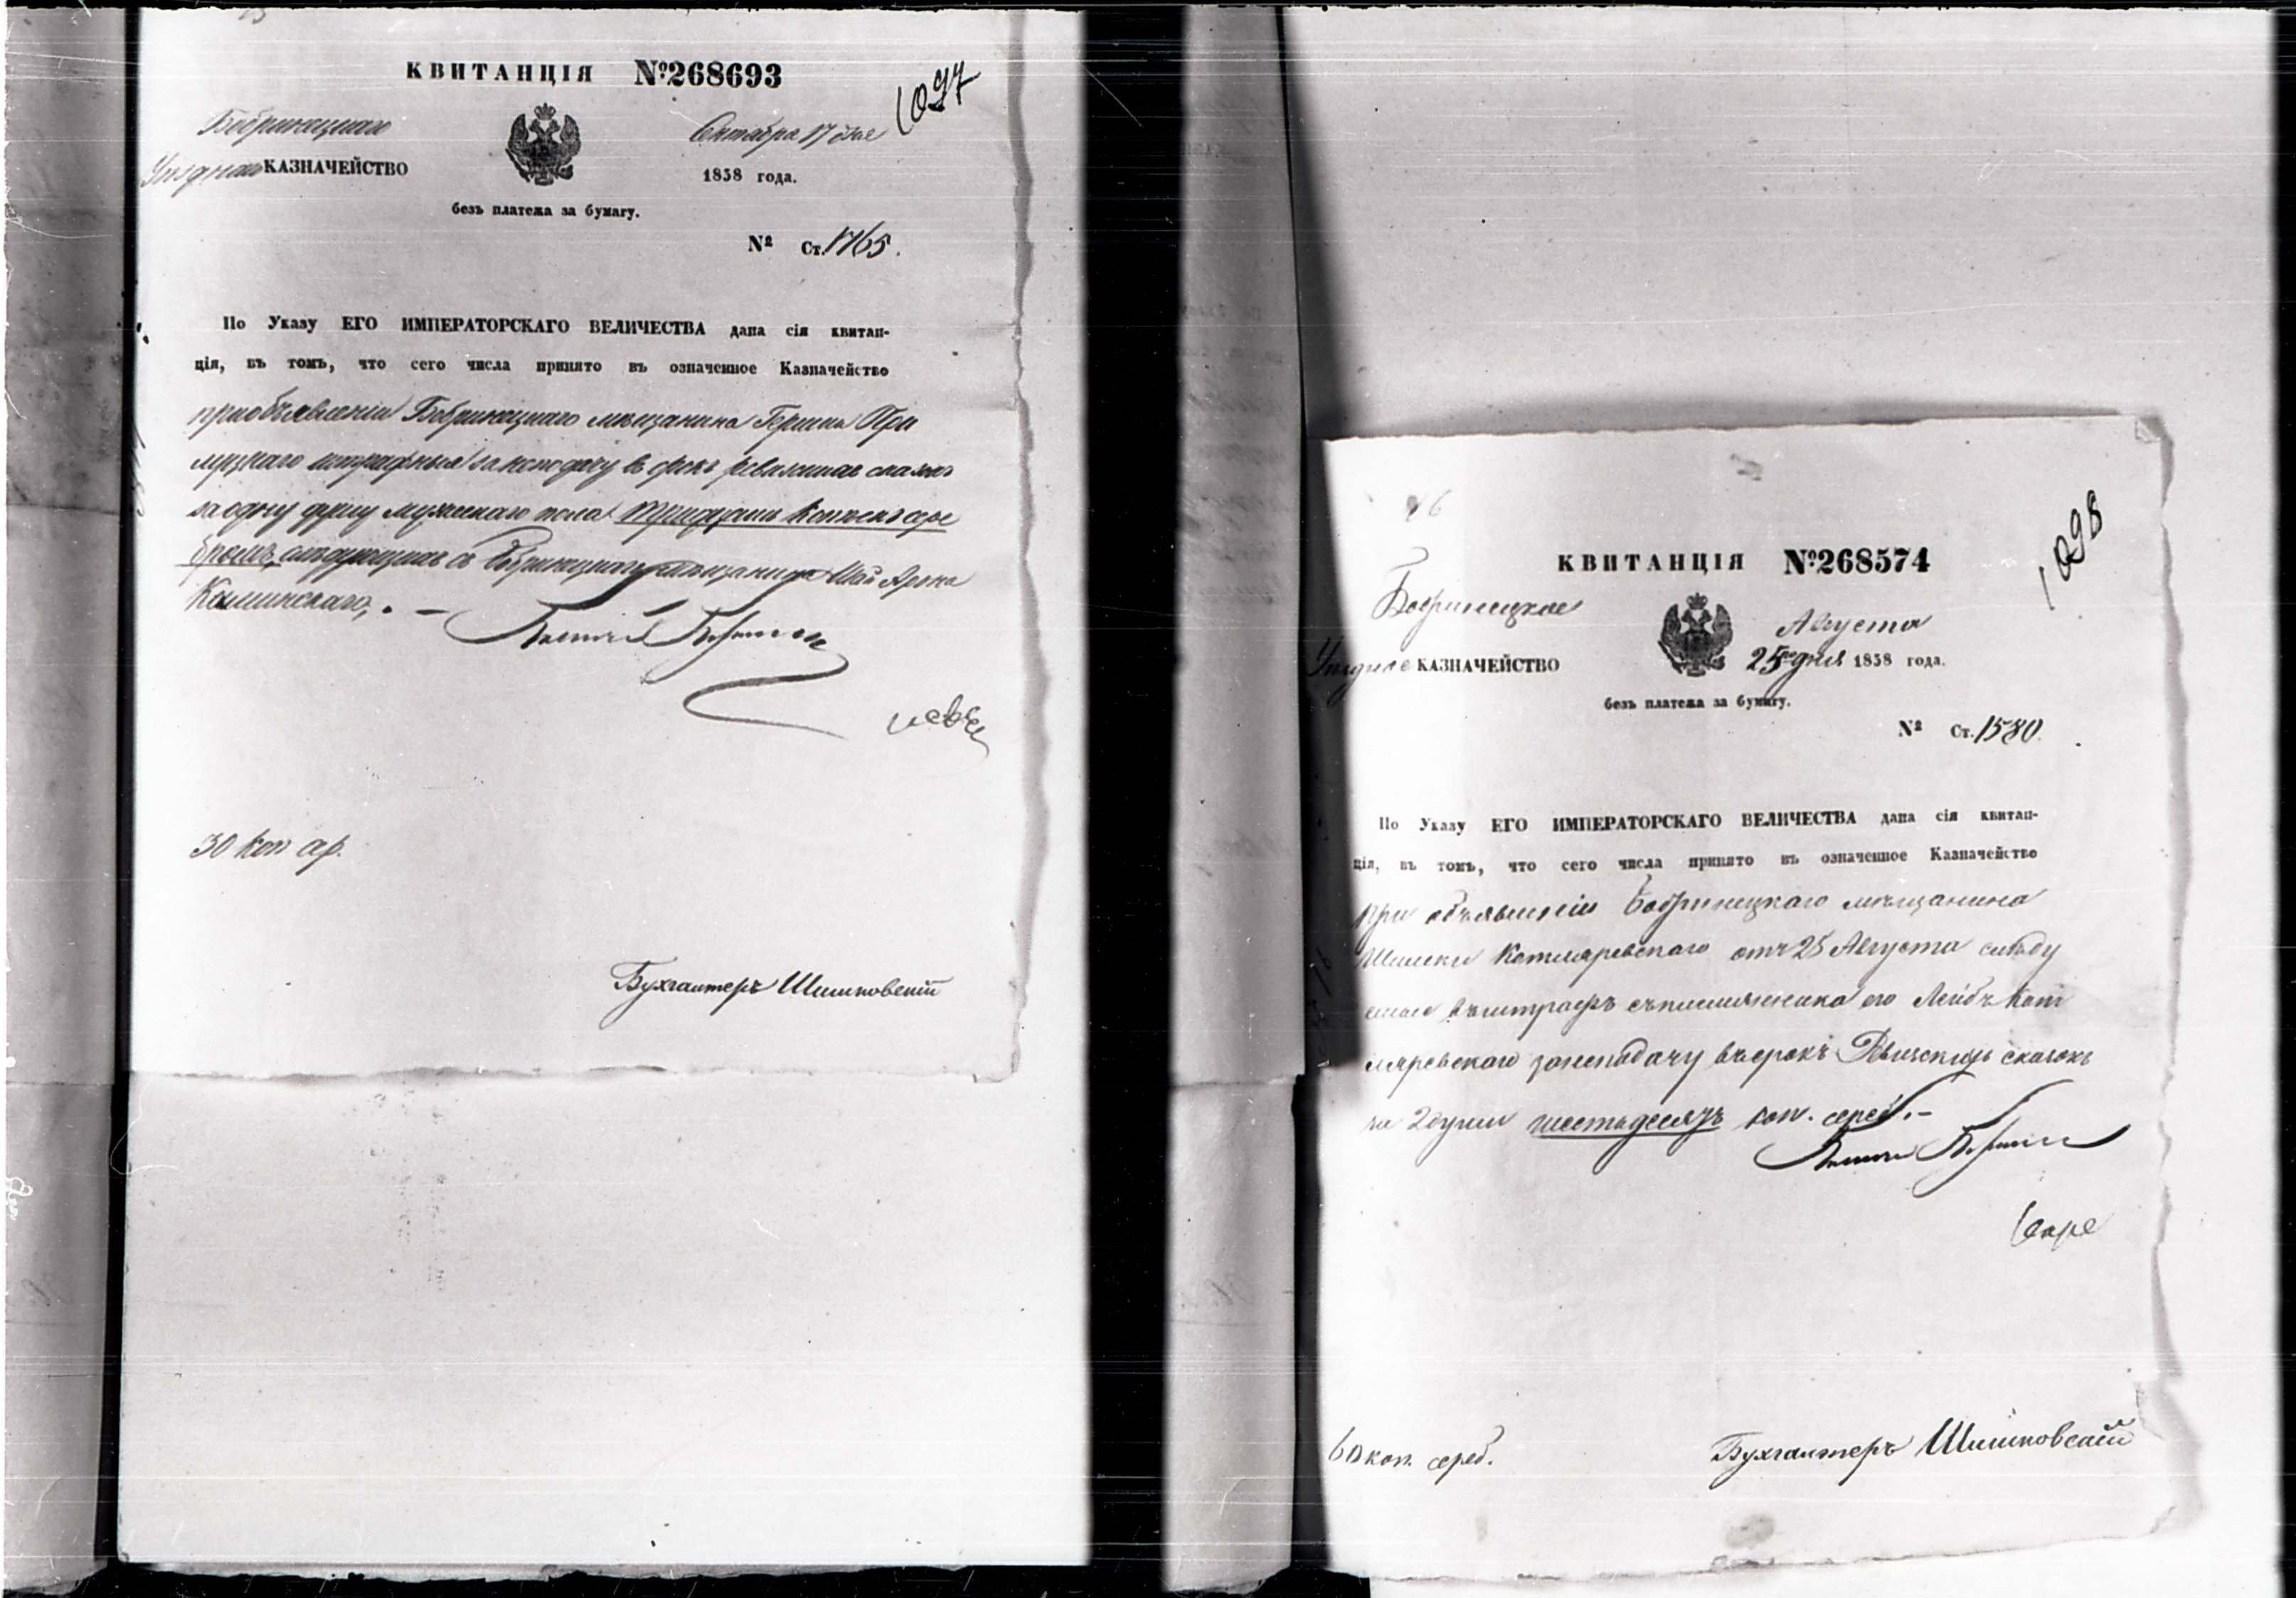 КВИТАНЦІЯ №268693
1097
Бобринецкаго
Октября 17 дня
Уѣздное КАЗНАЧЕЙСТВО
1858 года.
безъ платежа за бумагу.
№ Ст. 1765.
По Указу ЕГО ИМПЕРАТОРСКАГО ВЕЛИЧЕСТВА дана сія квитан-
ція, въ томъ, что сего числа принято въ означенное Казначейство
при объявленіи Бобринецкаго мѣщанина Гершка При
луцкаго штрафныя за неподачу въ срокъ ревизскихъ сказокъ
за одну душу мужескаго пола тридцать копѣекъ сере
бромъ, слѣдующихъ съ Бобринецкаго мѣщанина
Каминскаго. –
30 коп сер.
Бухгалтеръ Шишковскій
КВИТАНЦІЯ №268574
1098
Бобринецкое
Августа
Уѣздное КАЗНАЧЕЙСТВО
25 дня 1858 года.
безъ платежа за бумагу.
№ Ст. 1580.
По Указу ЕГО ИМПЕРАТОРСКАГО ВЕЛИЧЕСТВА дана сія квитан-
ція, въ томъ, что сего числа принято въ означенное Казначейство
при объявленіи Бобринецкаго мѣщанина
Котляревскаго отъ 25 Августа слѣду
емые въ штрафъ съ племянника его Лейбы Кот
ляревскаго за неподачу въ срокъ Ревизскихъ сказокъ
за 2 души шестьдесятъ коп. сереб. –
60 коп. сереб.
Бухгалтеръ Шишковскій